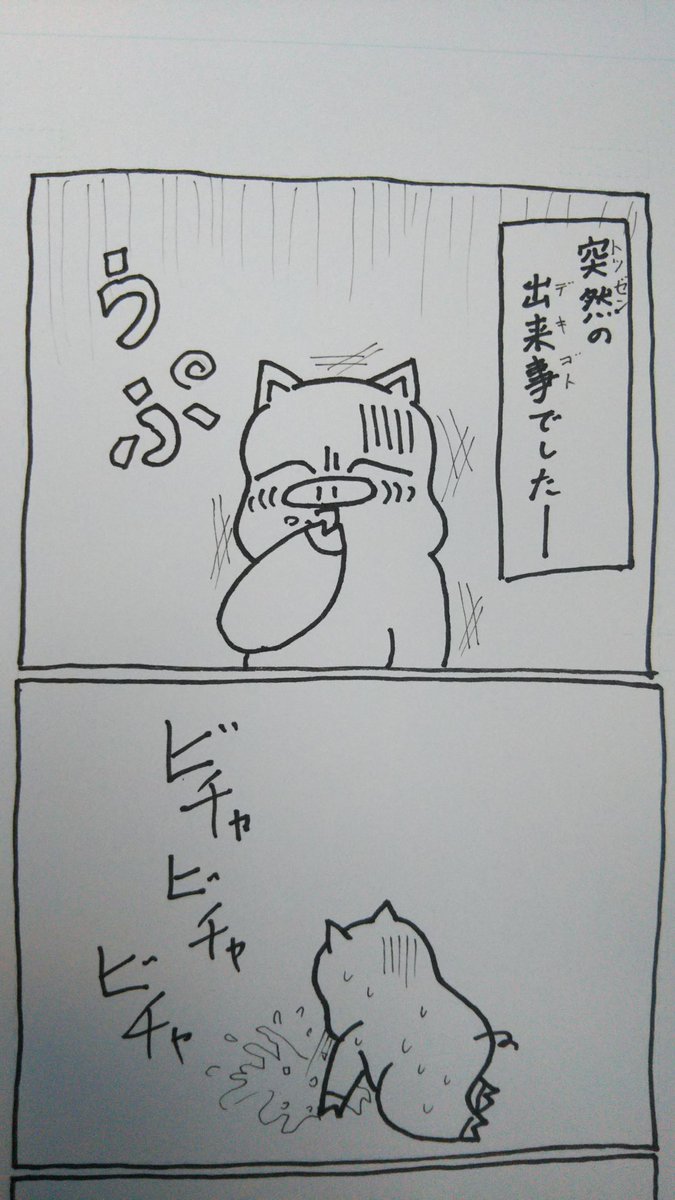 突然の
出来事でしたー
トツゼン
デキゴト
うぷ
ビチャ
ビチャ
ビチャ